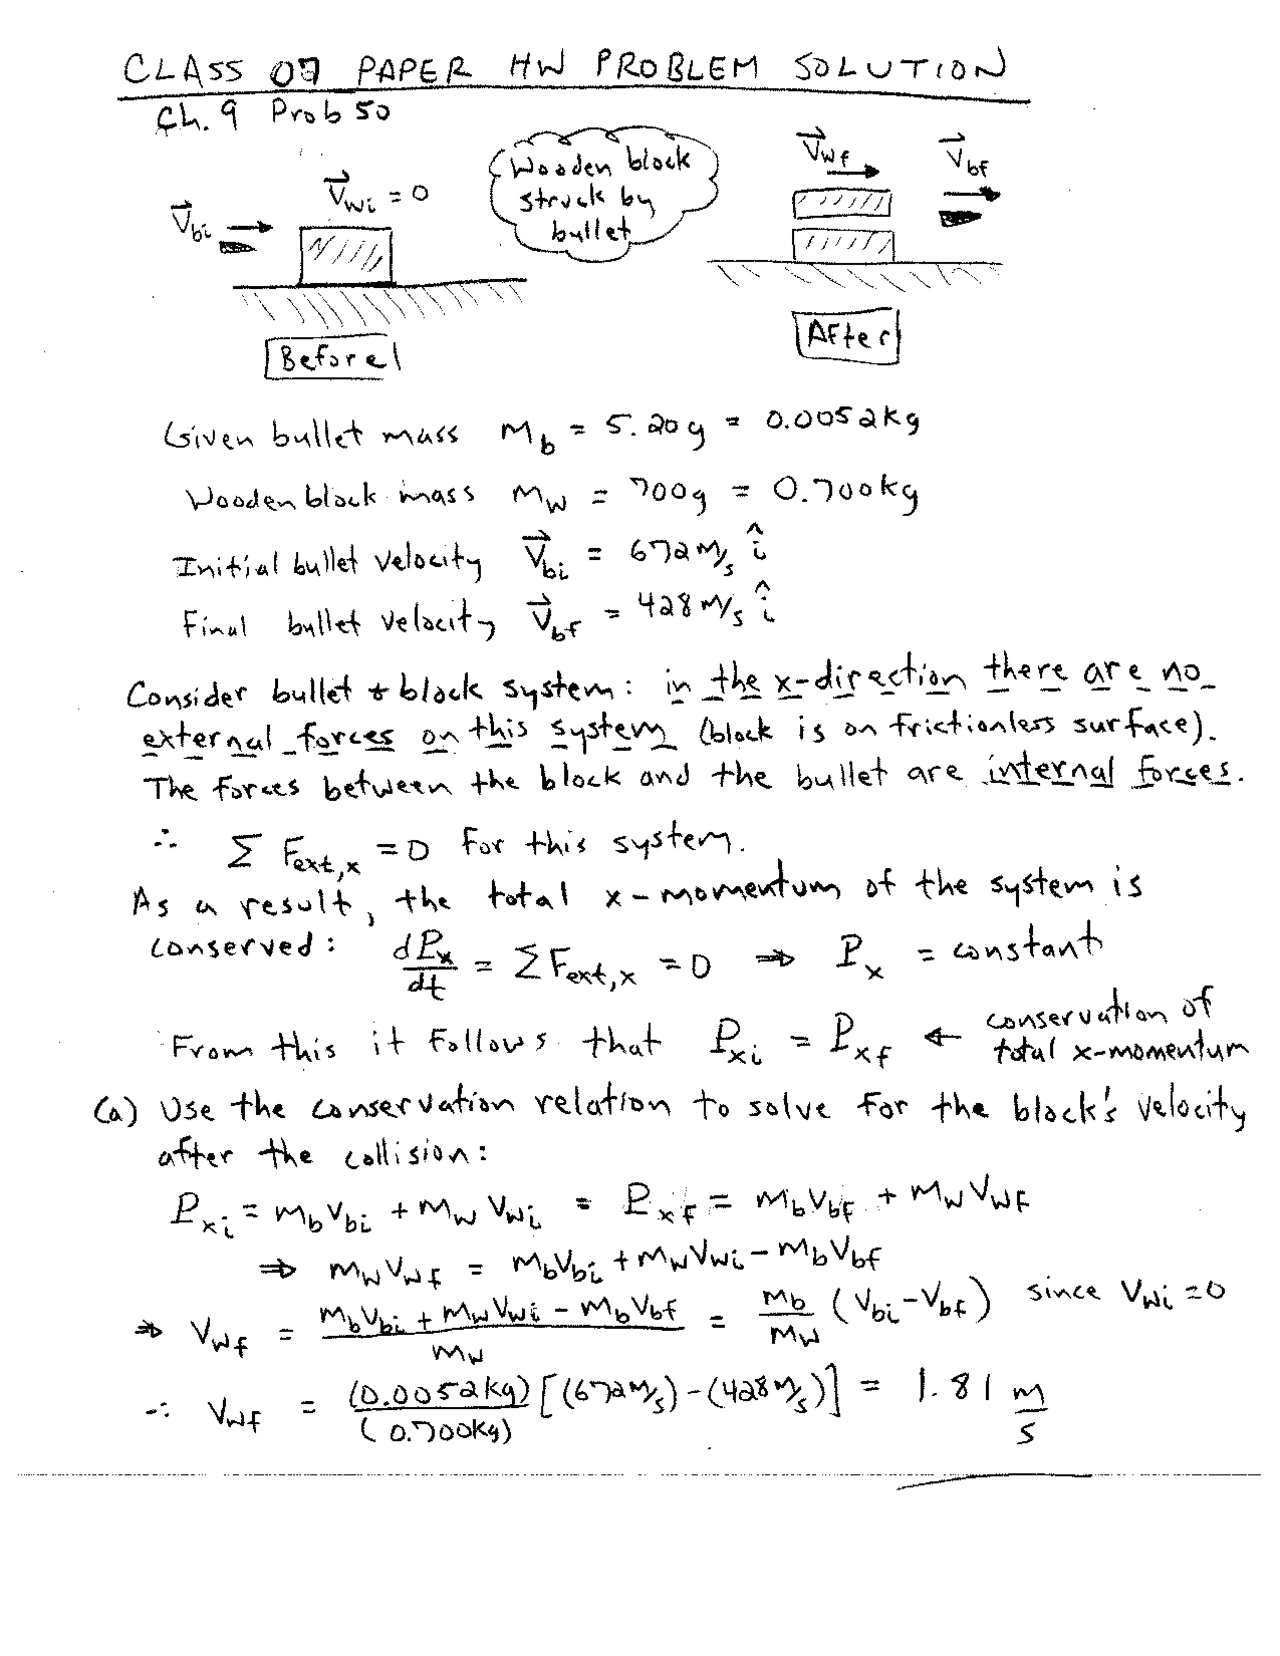 CLASS 07 PAPER HW PROBLEM SOLUTION
Ch. 9 Prob 50
V⃗bi
V⃗wi = 0
Wooden block
struck by
bullet
V⃗wf
V⃗bf
Before
After
Given bullet mass mb = 5.20g = 0.0052kg
Wooden block mass mw = 700g = 0.700kg
Initial bullet velocity V⃗bi = 672 m/s î
Final bullet velocity V⃗bf = 428 m/s î
Consider bullet & block system: in the x-direction there are no
external forces on this system (block is on frictionless surface).
The forces between the block and the bullet are internal forces.
∴ Σ Fext,x = 0 for this system.
As a result, the total x-momentum of the system is
conserved: dPx/dt = ΣFext,x = 0 ⇒ Px = constant
From this it follows that Pxi = Pxf ← conservation of
total x-momentum
(a) Use the conservation relation to solve for the block's velocity
after the collision:
Pxi = mbVbi + mwVwi = Pxf = mbVbf + mwVwf
⇒ mwVwf = mbVbi + mwVwi - mbVbf
⇒ Vwf = (mbVbi + mwVwi - mbVbf)/mw = mb/mw (Vbi - Vbf) since Vwi = 0
∴ Vwf = (0.0052kg)/(0.700kg) [(672m/s) - (428m/s)] = 1.81 m/s